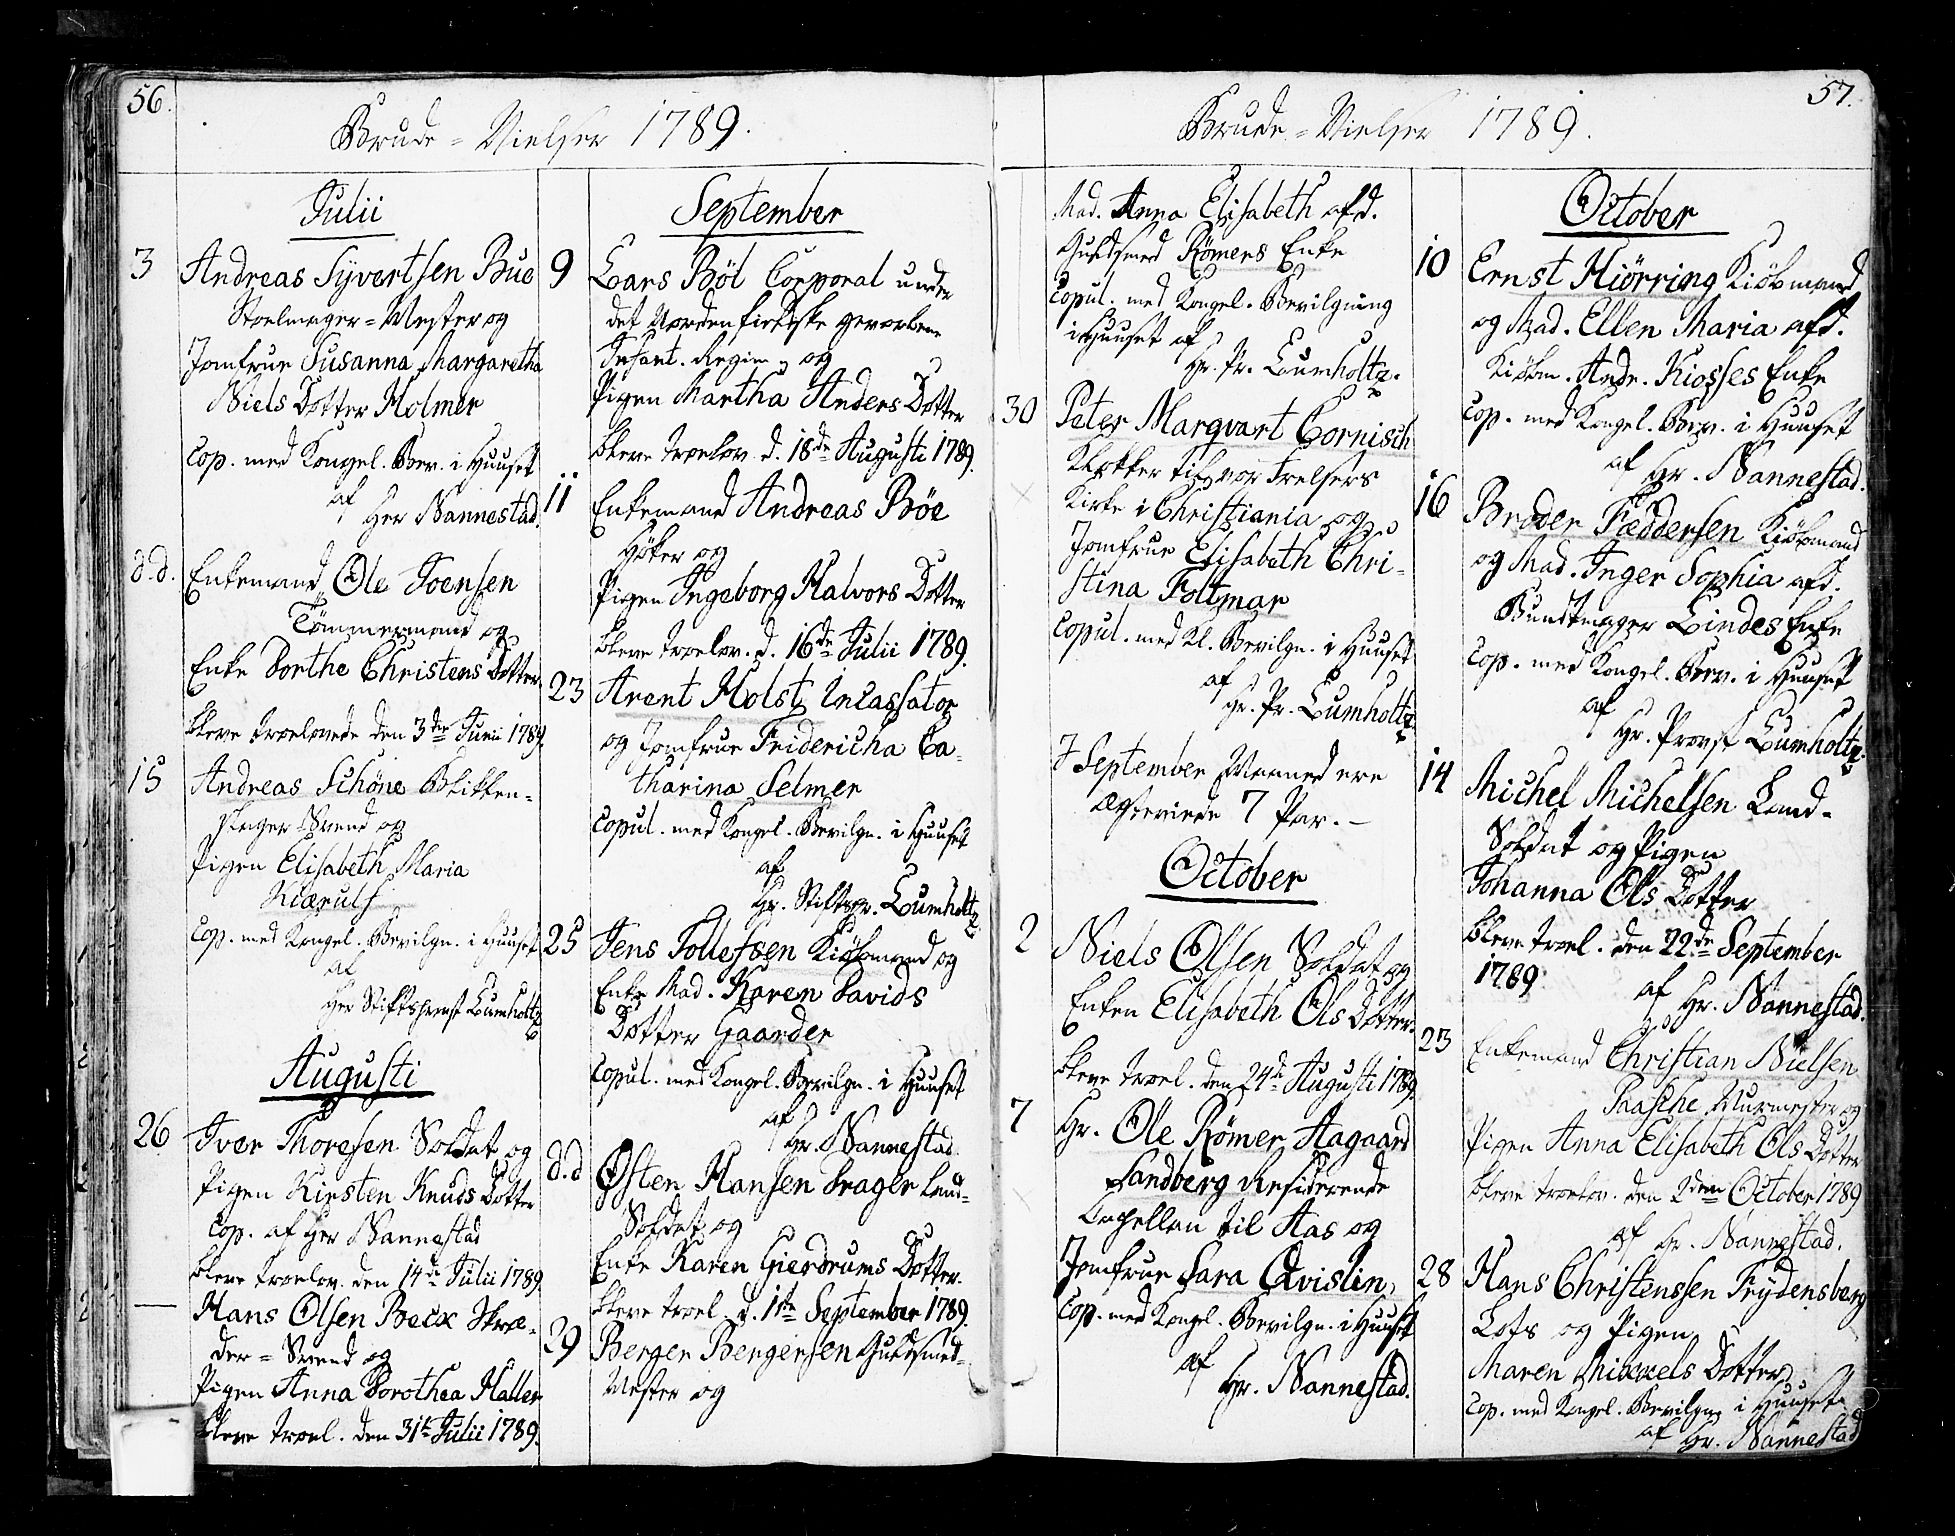 56.
Brude = Vielser 1789.
Julii
3 Andreas Syvertsen Bue
Stoelmager = Mester og
Jomfrue Susanna Margaretha
Niels Dotter Holmer
Cop. med Kongel. Bev. i Huuset
af
Her Nannestad.
d.d. Enkemand Ole Joensen
Tømmermand og
Enke Dorthe Christens Dotter
bleve troelovede den 3die Junii 1789.
15 Andreas Schöne Blikken-
slager Svend og
Pigen Elisabeth Maria
Kiærulf
Cop. med Kongel. Bevilgn. i Huuset
af
Her Stiftsprovst Lumholtz
Augusti
26 Iver Thoresen Soldat og
Pigen Kirsten Knuds Dotter
Cop. af Her Nannestad
bleve troelov. den 14de Julii 1789.
— Hans Olsen Beck Skræ-
der = Svend og
Pigen Anna Dorothea Haller
bleve troel. den 31te Julii 1789.
September
9 Lars Böl Corporal under
det Nordenfieldske gevorbene
Infant. Regim. og
Pigen Martha Anders Dotter
bleve troelov. d. 18de Augusti 1789.
11 Enkemand Andreas Böe
Höker og
Pigen Ingeborg Halvors Dotter
bleve troelov. d. 16de Julii 1789.
23 Arent Holst Incassator
og Jomfrue Fridericha Ca-
tharina Selmer
Copul. med Kongel. Bevilgn. i Huuset
af
Hr. Stiftspr. Lumholtz
25 Jens Tollefsen Kiöbmand og
Enke Mad. Karen Davids
Dotter Gaarder
Copul. med Kongel. Bevilgn. i Huuset
af
Hr. Nannestad.
d.d Østen Hansen Drager Land-
Soldat og
Enke Karen Gierdrums Dotter.
bleve troel. d. 1te September 1789.
29 Berger Bergersen Guldsmed-
Mester og
57.
Brude = Vielser 1789.
Mad. Anna Elisabeth afd.
Guldsmed Römers Enke
Copul. med Kongel. Bevilgning
i Huuset af
Hr. Pr. Lumholtz.
30 Peter Marqvart Cornisch
Klokker til vor Frelsers
Kirke i Christiania og
Jomfrue Elisabeth Chri-
stina Foltmar
Copul. med Kl. Bevilgn. i Huuset
af
Hr. Pr. Lumholtz
I September Maaned ere
ægteviede 7 Par. —
October
2 Niels Olsen Soldat og
Enken Elisabeth Ols Dotter.
bleve troel. den 24de Augusti 1789
7 Hr. Ole Römer Aagaard
Sandberg Residerende
Capellan til Aas og
Jomfrue Sara Qvislin,
Cop. med Kongl. Bevilgn. i Huuset
af
Hr. Nannestad.
October
10 Ernst Hiörring Kiöbmand
og Mad. Ellen Maria afd.
Kiöbm. Andr. Kiosses Enke
Cop. med Kongel. Bev. i Huuset
af Hr. Nannestad.
16 Broder Fæddersen Kiöbmand
og Mad. Inger Sophia afd.
Bundtmager Lindes Enke
Cop. med Kongel. Bev. i Huuset
af
Hr. Provst Lumholtz.
14 Michel Michelsen Land-
Soldat og Pigen
Johanna Ols Dotter
bleve troel. den 22de September
1789
af Hr. Nannestad.
23 Enkemand Christian Nielsen
Paasche Murmester og
Pigen Anna Elisabeth Ols Dotter
bleve troelov. den 2den October 1789
af Hr. Nannestad.
28 Hans Christenssen Frydensberg
Lots og Pigen
Maren Mikkels Dotter
Cop. med Kongel. Bevilgn. i Huuset
af Hr. Nannestad